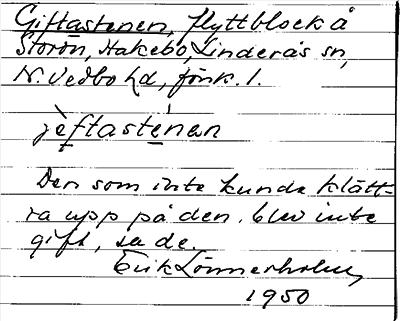 Giftastenen, flyttblock å
Storön, Hakebo, Linderås sn,
N. Vedbo hd, Jönk. l.
jèftasténan
Den som inte kunde klätt-
ra upp på den, blev inte
gift, sade
Erik Lönnerholm,
1950